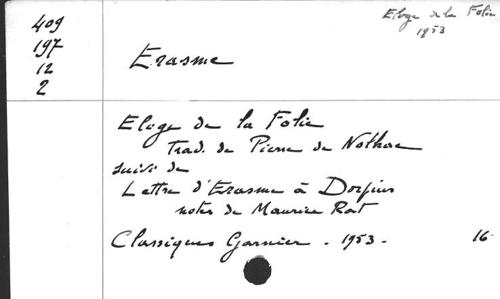 409
197
12
2
Eloge de la Folie
1953
Erasme
Eloge de la Folie
Trad. de Pierre de Nolhac
suivi de
Lettre d'Erasme à Dorpius
notes de Maurice Rat
Classiques Garnier - 1953 - 16